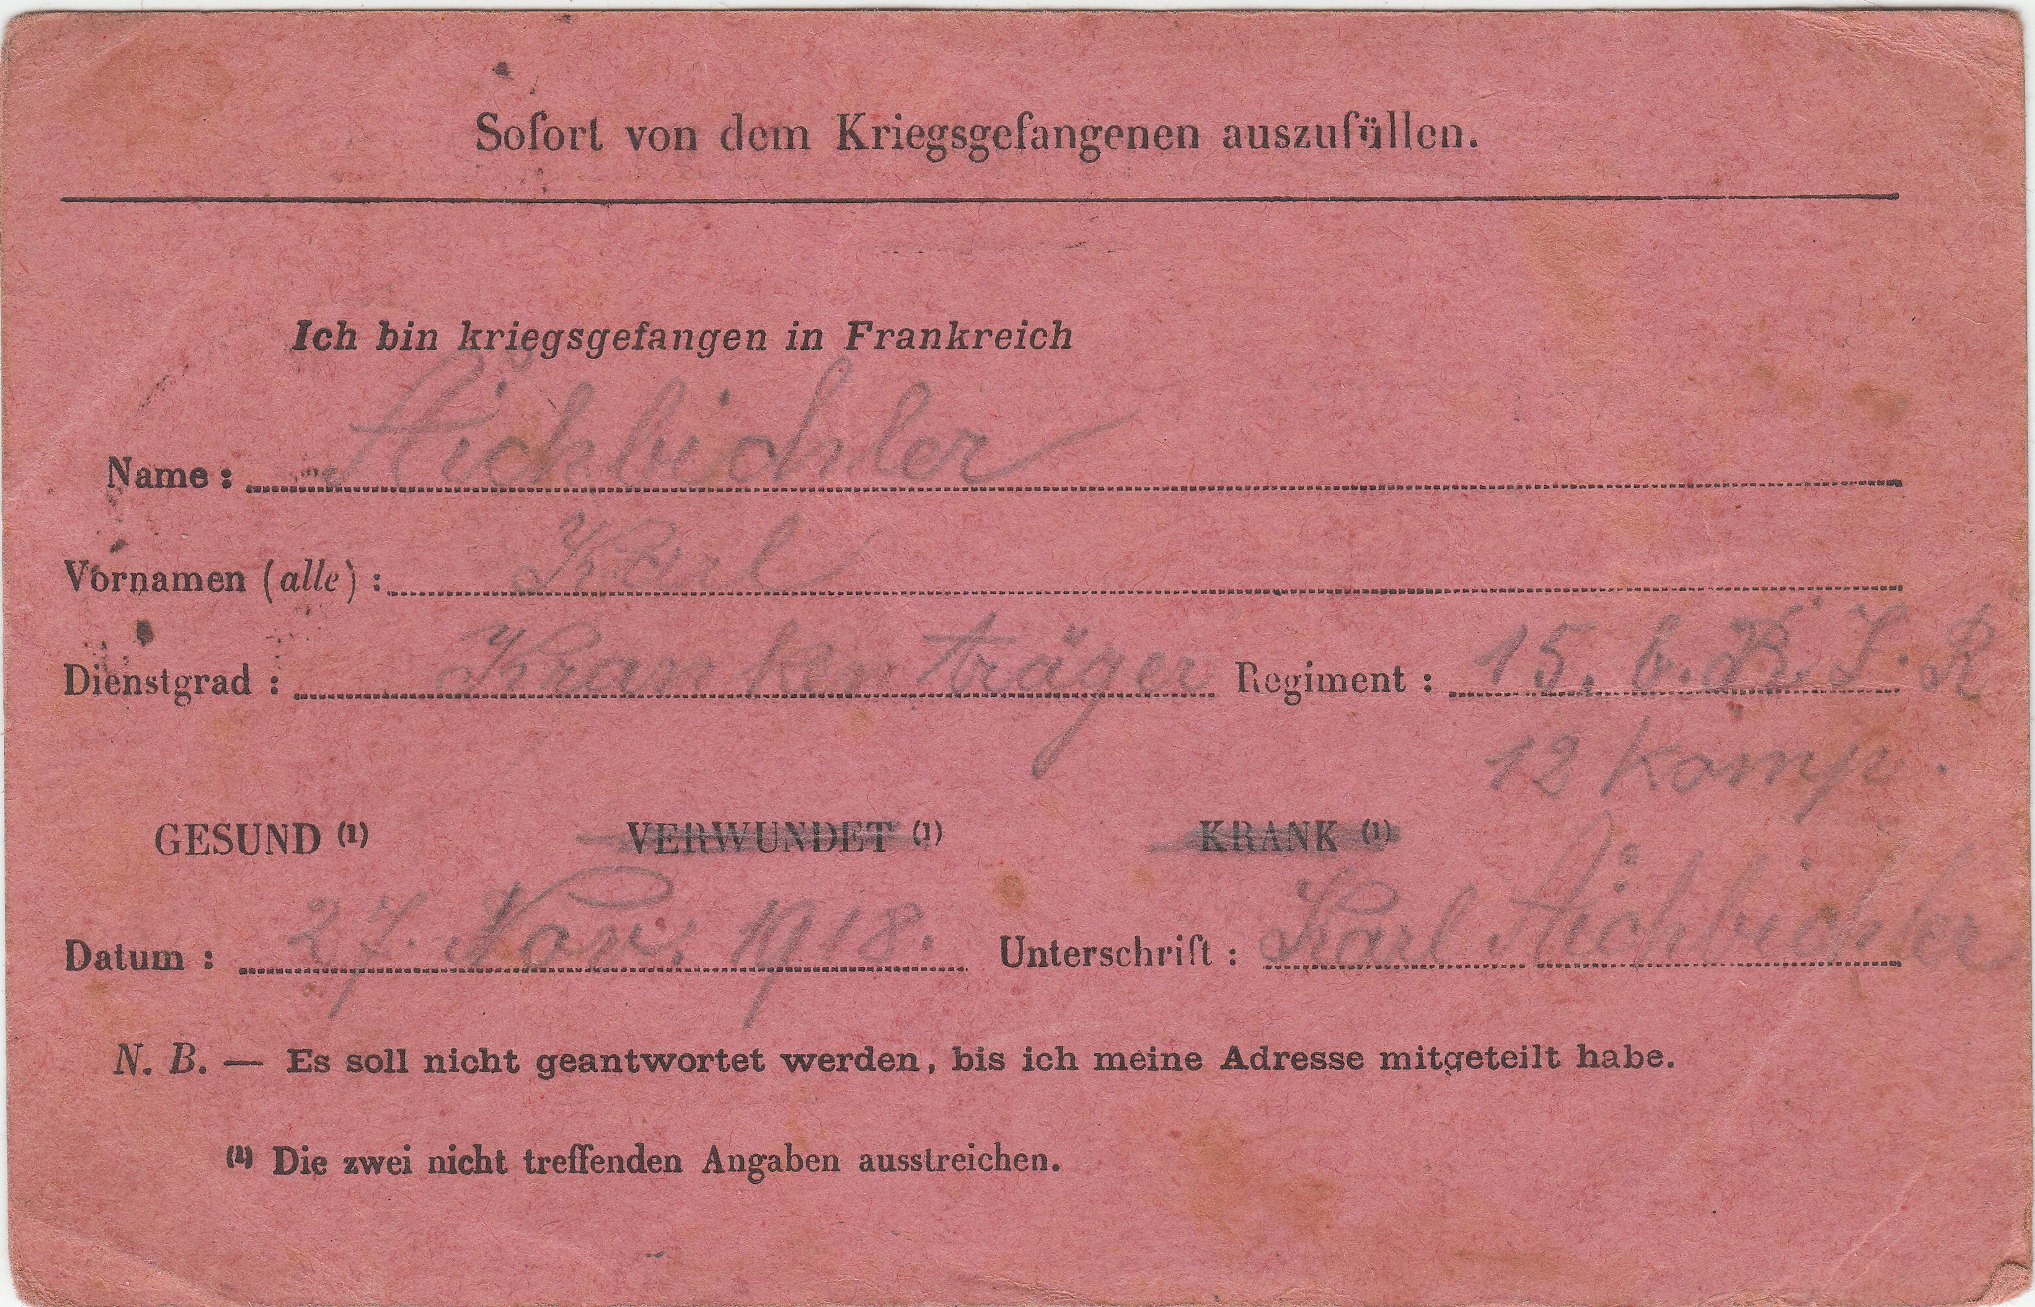 Sofort von dem Kriegsgefangenen auszufüllen.
Ich bin kriegsgefangen in Frankreich
Name : Aichbichler
Vornamen (alle) : Karl
Dienstgrad : Krankenträger Regiment : 15. b. R. I. R
12 Komp.
GESUND (1) VERWUNDET (1) KRANK (1)
Datum : 27. Nov. 1918. Unterschrift : Karl Aichbichler
N. B. — Es soll nicht geantwortet werden, bis ich meine Adresse mitgeteilt habe.
(1) Die zwei nicht treffenden Angaben ausstreichen.